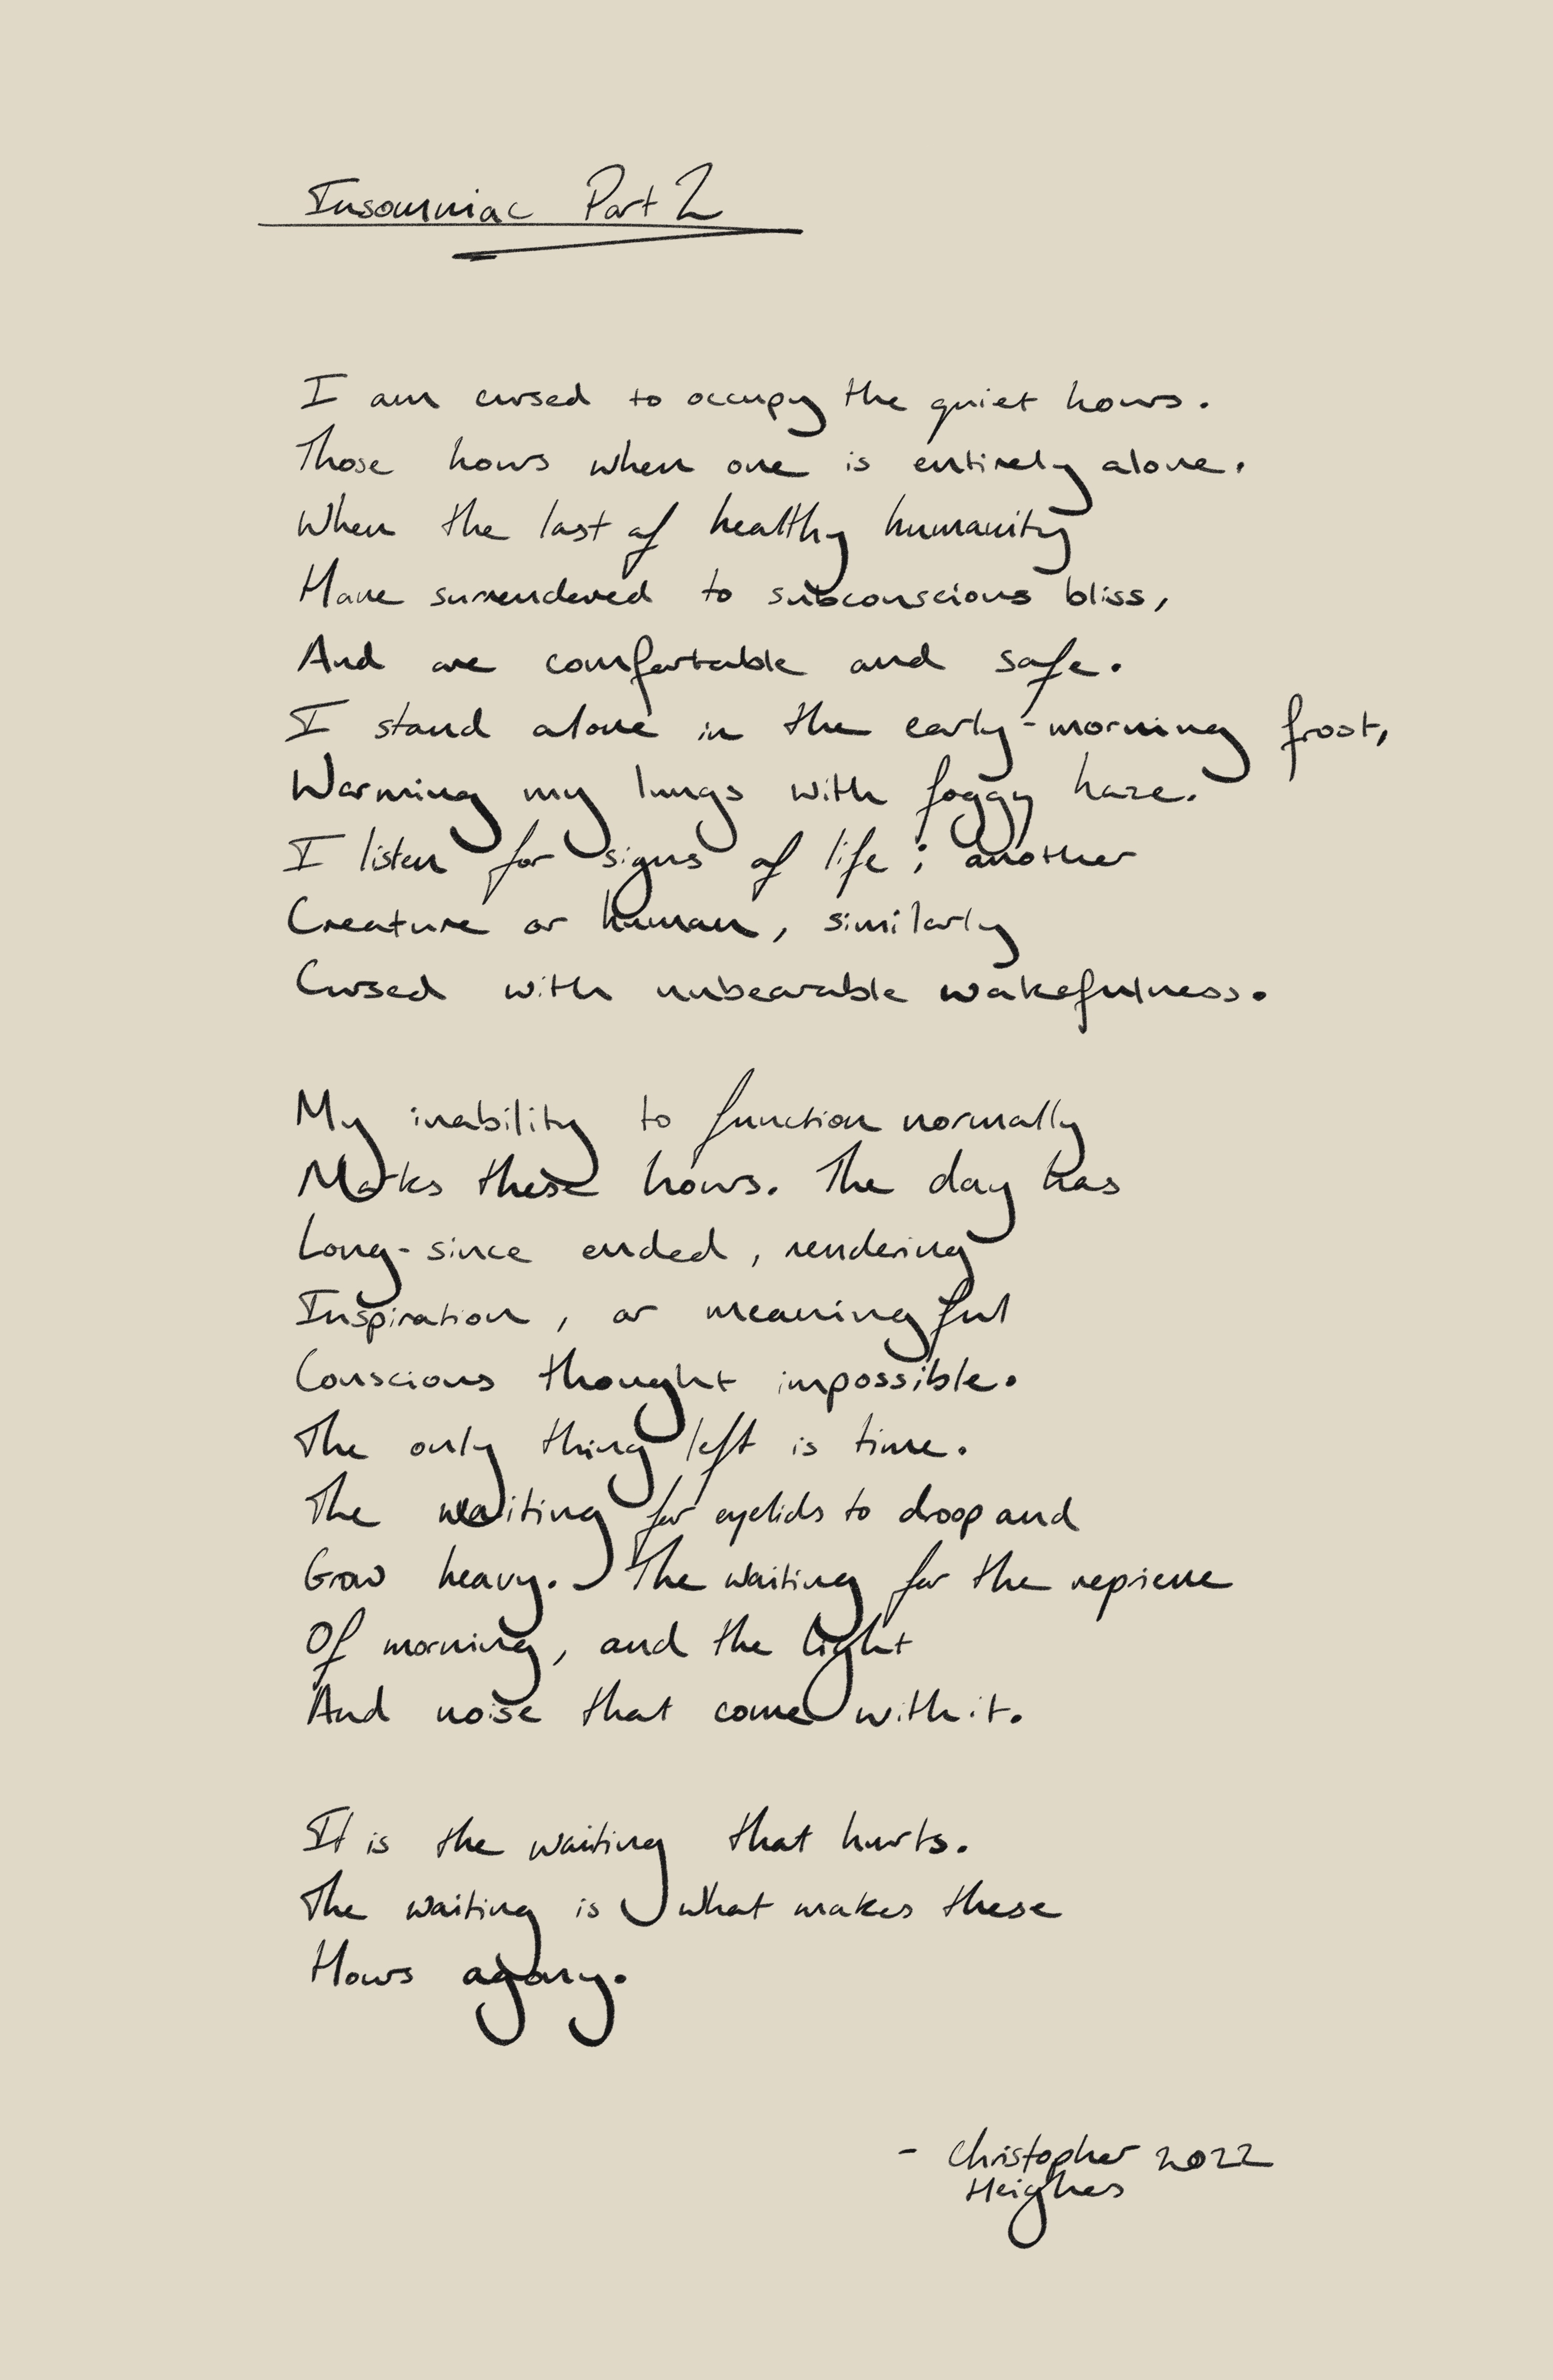 Insomniac Part 2
I am cursed to occupy the quiet hours.
Those hours when one is entirely alone.
When the last of healthy humanity
Have surrendered to subconscious bliss,
And are comfortable and safe.
I stand alone in the early-morning frost,
Warming my lungs with foggy haze.
I listen for signs of life; another
Creature or human, similarly
Cursed with unbearable wakefulness.
My inability to function normally
Marks these hours. The day has
Long-since ended, rendering
Inspiration, or meaningful
Conscious thought impossible.
The only thing left is time.
The waiting for eyelids to droop and
Grow heavy. The waiting for the reprieve
Of morning, and the light
And noise that come with it.
It is the waiting that hurts.
The waiting is what makes these
Hours agony.
- Christopher 2022
Heighes